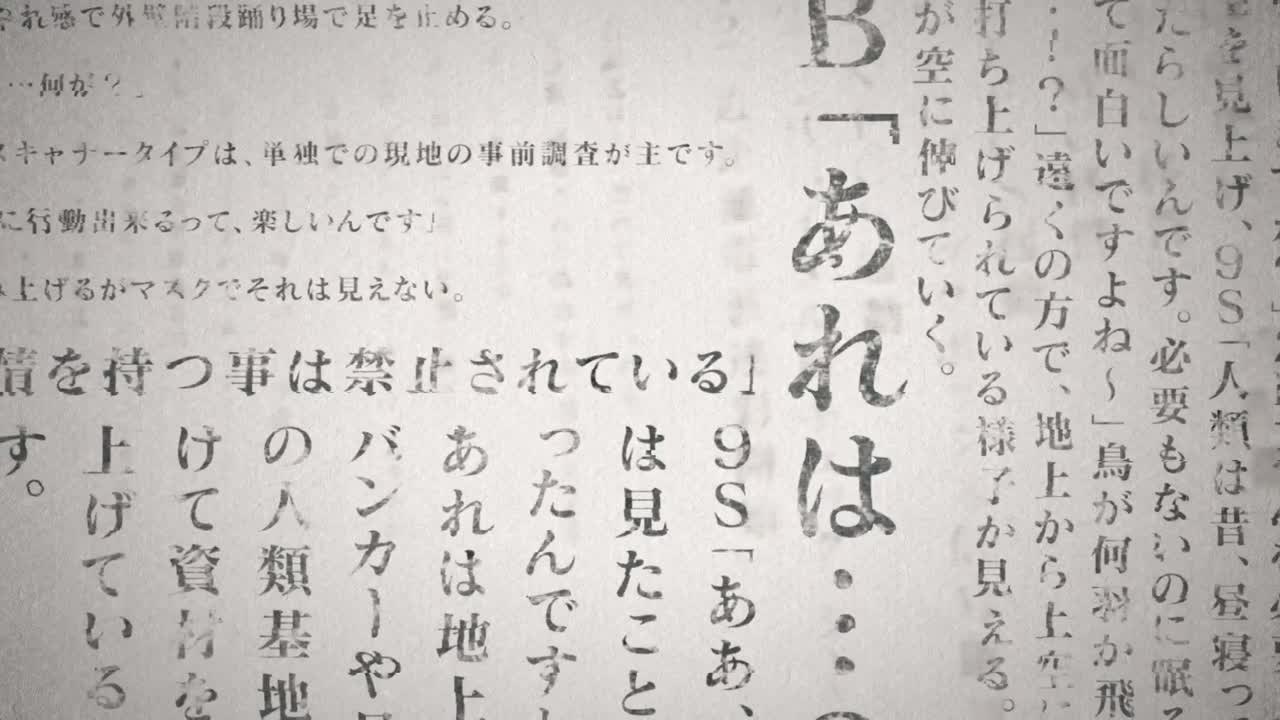 で外壁階段踊り場で足を止める。
…何が？」
スキャナータイプは、単独での現地の事前調査が主です。
に行動出来るって、楽しいんです」
上げるがマスクでそれは見えない。
情を持つ事は禁止されている」
を見上げ、9S「人類は昔、昼寝っ
たらしいんです。必要もないのに眠る
て面白いですよね～」鳥が何羽か飛
・！？」遠くの方で、地上から上空に
打ち上げられている様子が見える。
が空に伸びていく。
B「あれは…
9S「ああ、
は見たこと
ったんですね
あれは地上
バンカーや
の人類基地
けて資材を
上げている
す。